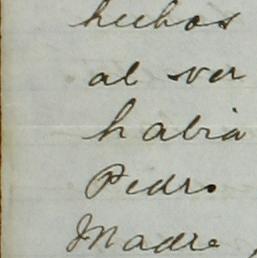 hechos
al ver
habia
Pedro
Madre,